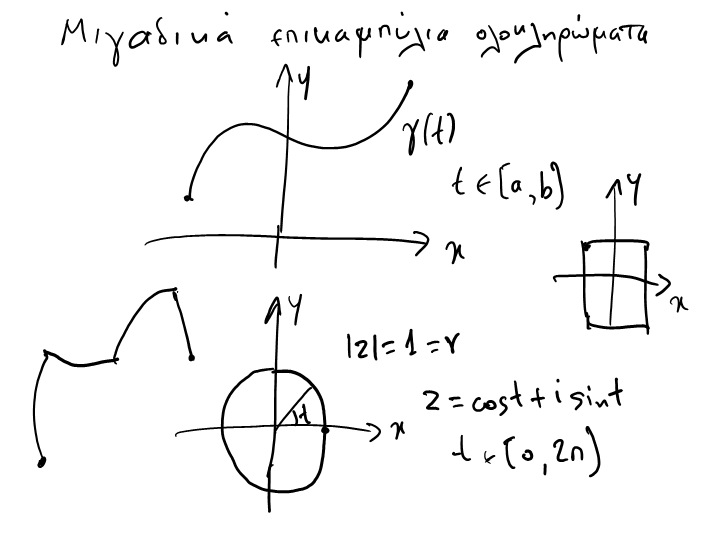 Μιγαδικά επικαμπύλια ολοκληρώματα
y
γ(t)
t ∈ [a, b]
x
y
x
y
|z| = 1 = r
t
x
z = cost + i sint
t ∈ [0, 2π)